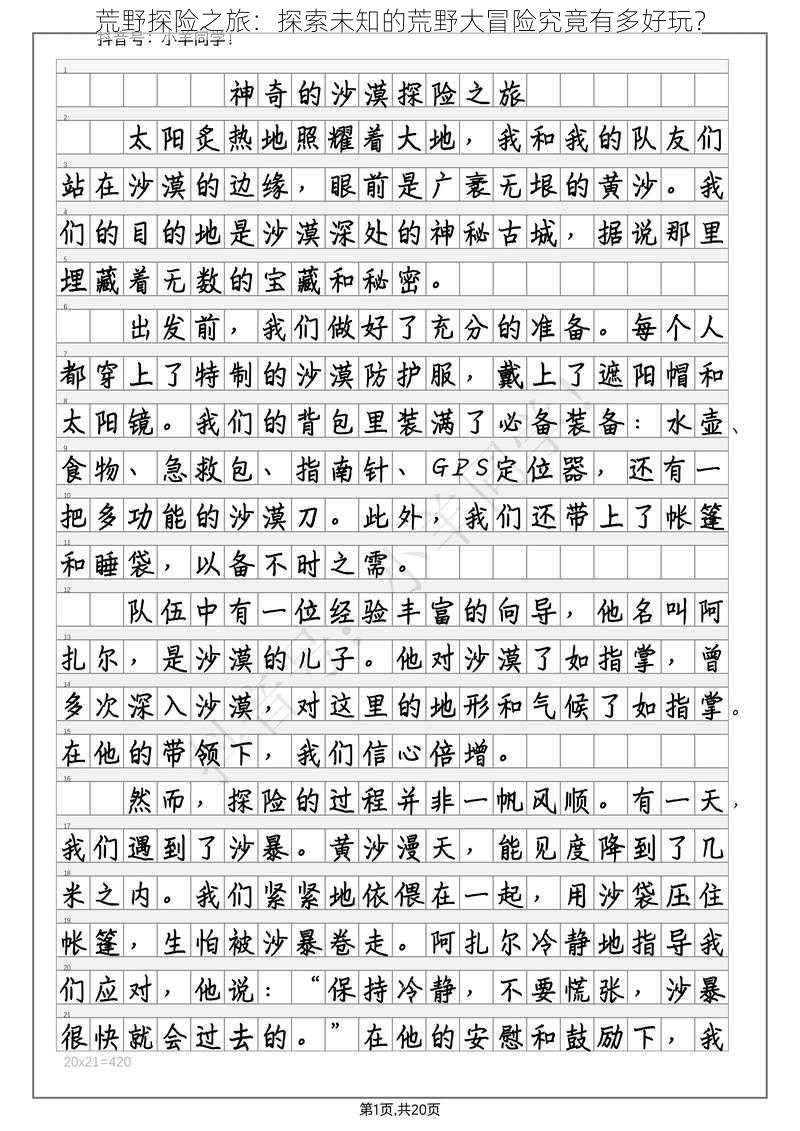 荒野探险之旅：探索未知的荒野大冒险究竟有多好玩？
抖音号：小羊同学！
1
神奇的沙漠探险之旅
2
太阳炙热地照耀着大地，我和我的队友们
3
站在沙漠的边缘，眼前是广袤无垠的黄沙。我
4
们的目的地是沙漠深处的神秘古城，据说那里
5
埋藏着无数的宝藏和秘密。
6
出发前，我们做好了充分的准备。每个人
7
都穿上了特制的沙漠防护服，戴上了遮阳帽和
8
太阳镜。我们的背包里装满了必备装备：水壶、
9
食物、急救包、指南针、GPS定位器，还有一
10
把多功能的沙漠刀。此外，我们还带上了帐篷
11
和睡袋，以备不时之需。
12
队伍中有一位经验丰富的向导，他名叫阿
13
扎尔，是沙漠的儿子。他对沙漠了如指掌，曾
14
多次深入沙漠，对这里的地形和气候了如指掌。
15
在他的带领下，我们信心倍增。
16
然而，探险的过程并非一帆风顺。有一天，
17
我们遇到了沙暴。黄沙漫天，能见度降到了几
18
米之内。我们紧紧地依偎在一起，用沙袋压住
19
帐篷，生怕被沙暴卷走。阿扎尔冷静地指导我
20
们应对，他说：“保持冷静，不要慌张，沙暴
21
很快就会过去的。”在他的安慰和鼓励下，我
20x21=420
抖音号：小羊同学！
第1页,共20页